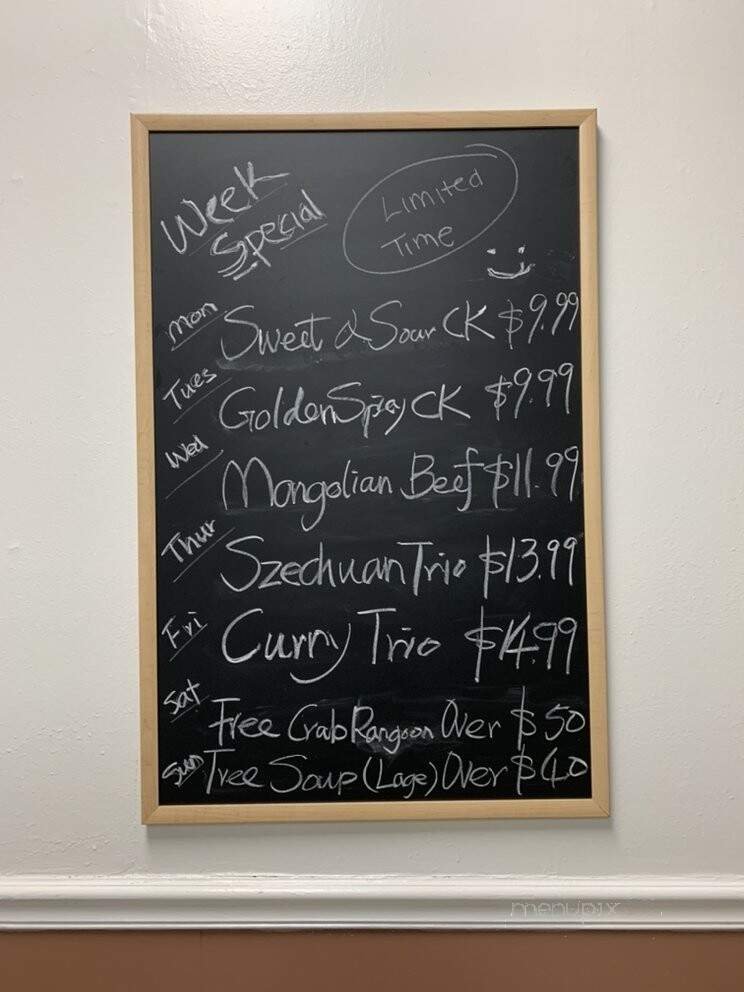 Week
Special
Limited
Time
Mon Sweet & Sour CK $9.99
Tues Golden Spicy CK $9.99
Wed Mongolian Beef $11.99
Thur Szechuan Trio $13.99
Fri Curry Trio $14.99
Sat Free Crab Rangoon Over $50
Sun Free Soup (Lage) Over $40
menupix